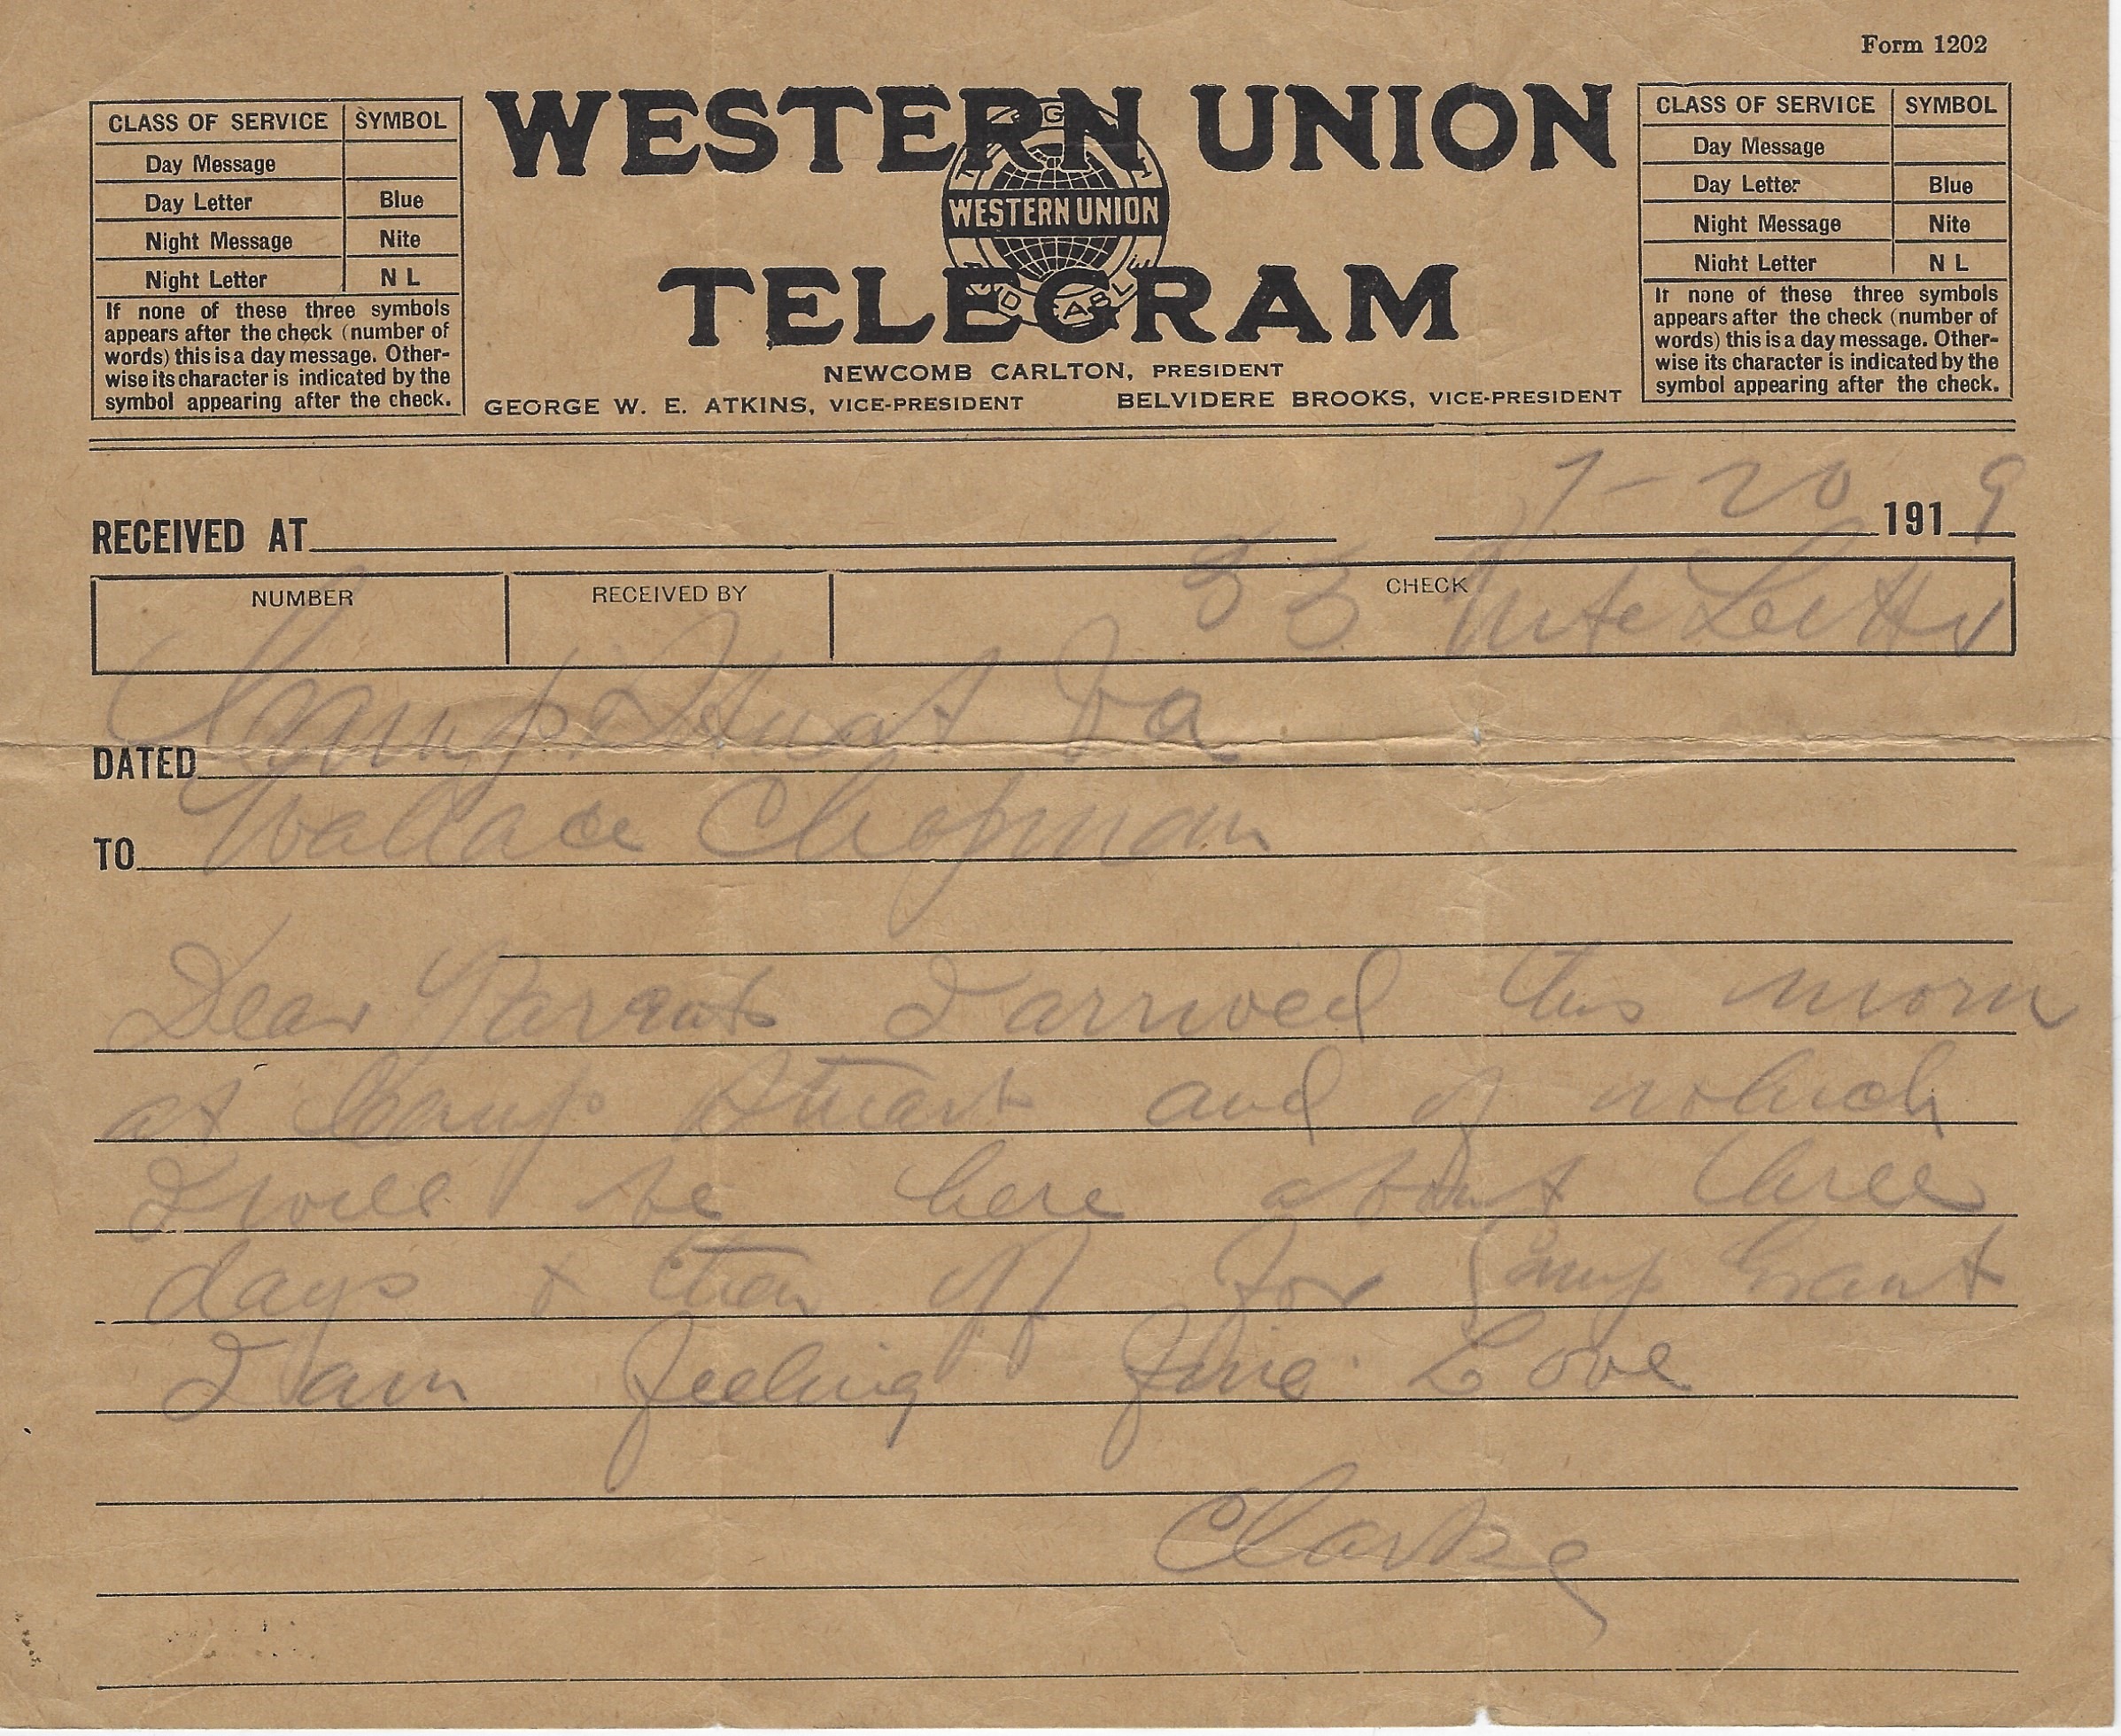 Form 1202
CLASS OF SERVICE SYMBOL
Day Message
Day Letter Blue
Night Message Nite
Night Letter N L
If none of these three symbols
appears after the check (number of
words) this is a day message. Other-
wise its character is indicated by the
symbol appearing after the check.
WESTERN UNION
WESTERN UNION
TELEGRAM
NEWCOMB CARLTON, PRESIDENT
GEORGE W. E. ATKINS, VICE-PRESIDENT BELVIDERE BROOKS, VICE-PRESIDENT
CLASS OF SERVICE SYMBOL
Day Message
Day Letter Blue
Night Message Nite
Night Letter N L
If none of these three symbols
appears after the check (number of
words) this is a day message. Other-
wise its character is indicated by the
symbol appearing after the check.
RECEIVED AT 7-20 1919
NUMBER RECEIVED BY CHECK
33 Nite Letter
DATED Camp Stuart Va
TO Wallace Chapman
Dear Parents I arrived this morn
at Camp Stuart and of which
I will be here about three
days & then off for Camp Grant
I am feeling fine Love
Clarke